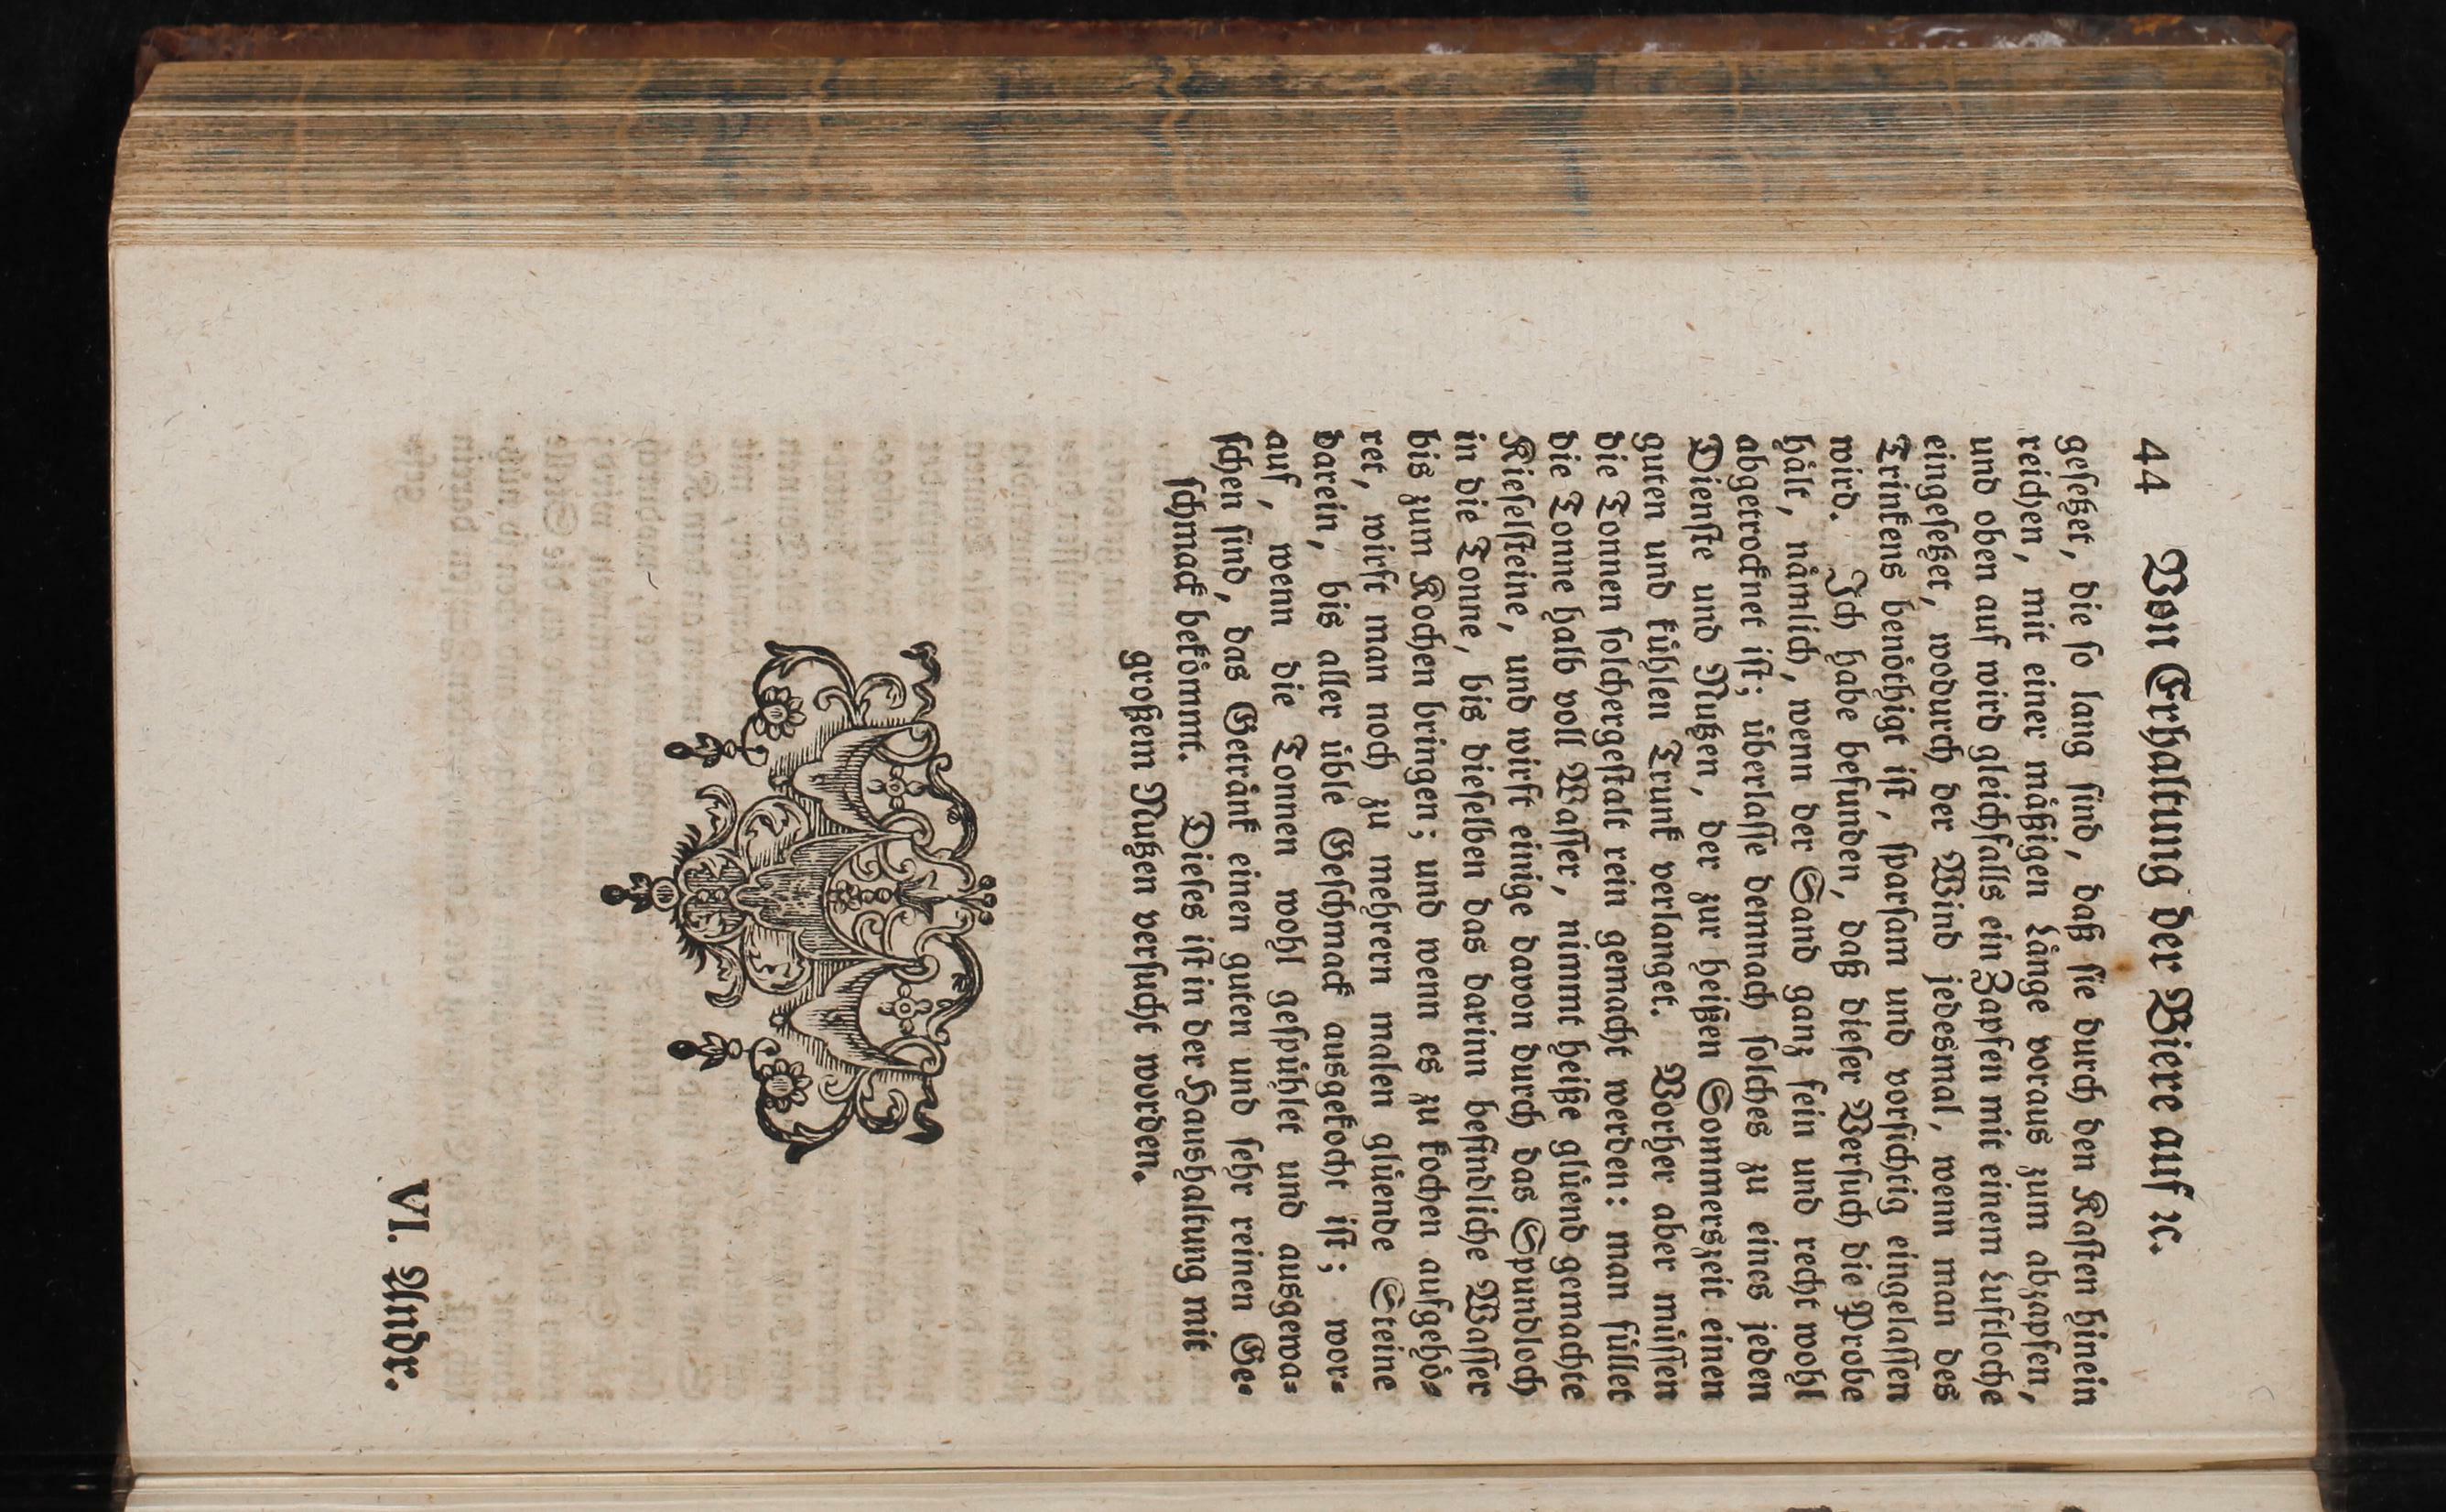 44 Von Erhaltung der Biere auf ꝛc.
geſetzet, die ſo lang ſind, daß ſie durch den Kaſten hinein
reichen, mit einer mäßigen Länge voraus zum abzapfen,
und oben auf wird gleichfalls ein Zapfen mit einem Luftloche
eingeſetzet, wodurch der Wind jedesmal, wenn man des
Trinkens benöthigt iſt, ſparſam und vorſichtig eingelaſſen
wird. Ich habe befunden, daß dieſer Verſuch die Probe
hält, nämlich, wenn der Sand ganz fein und recht wohl
abgetrocknet iſt; überlaſſe demnach ſolches zu eines jeden
Dienſte und Nutzen, der zur heißen Sommerszeit einen
guten und kühlen Trunk verlanget. Vorher aber müſſen
die Tonnen ſolchergeſtalt rein gemacht werden: man füllet
die Tonne halb voll Waſſer, nimmt heiße glüend gemachte
Kieſelſteine, und wirft einige davon durch das Spundloch
in die Tonne, bis dieſelben das darinn befindliche Waſſer
bis zum Kochen bringen; und wenn es zu kochen aufgehö-
ret, wirft man noch zu mehrern malen glüende Steine
darein, bis aller üble Geſchmack ausgekocht iſt; wor-
auf, wenn die Tonnen wohl geſpühlet und ausgewa-
ſchen ſind, das Getränk einen guten und ſehr reinen Ge-
ſchmack bekömmt. Dieſes iſt in der Haushaltung mit
großem Nutzen verſucht worden.
VI. Andr.